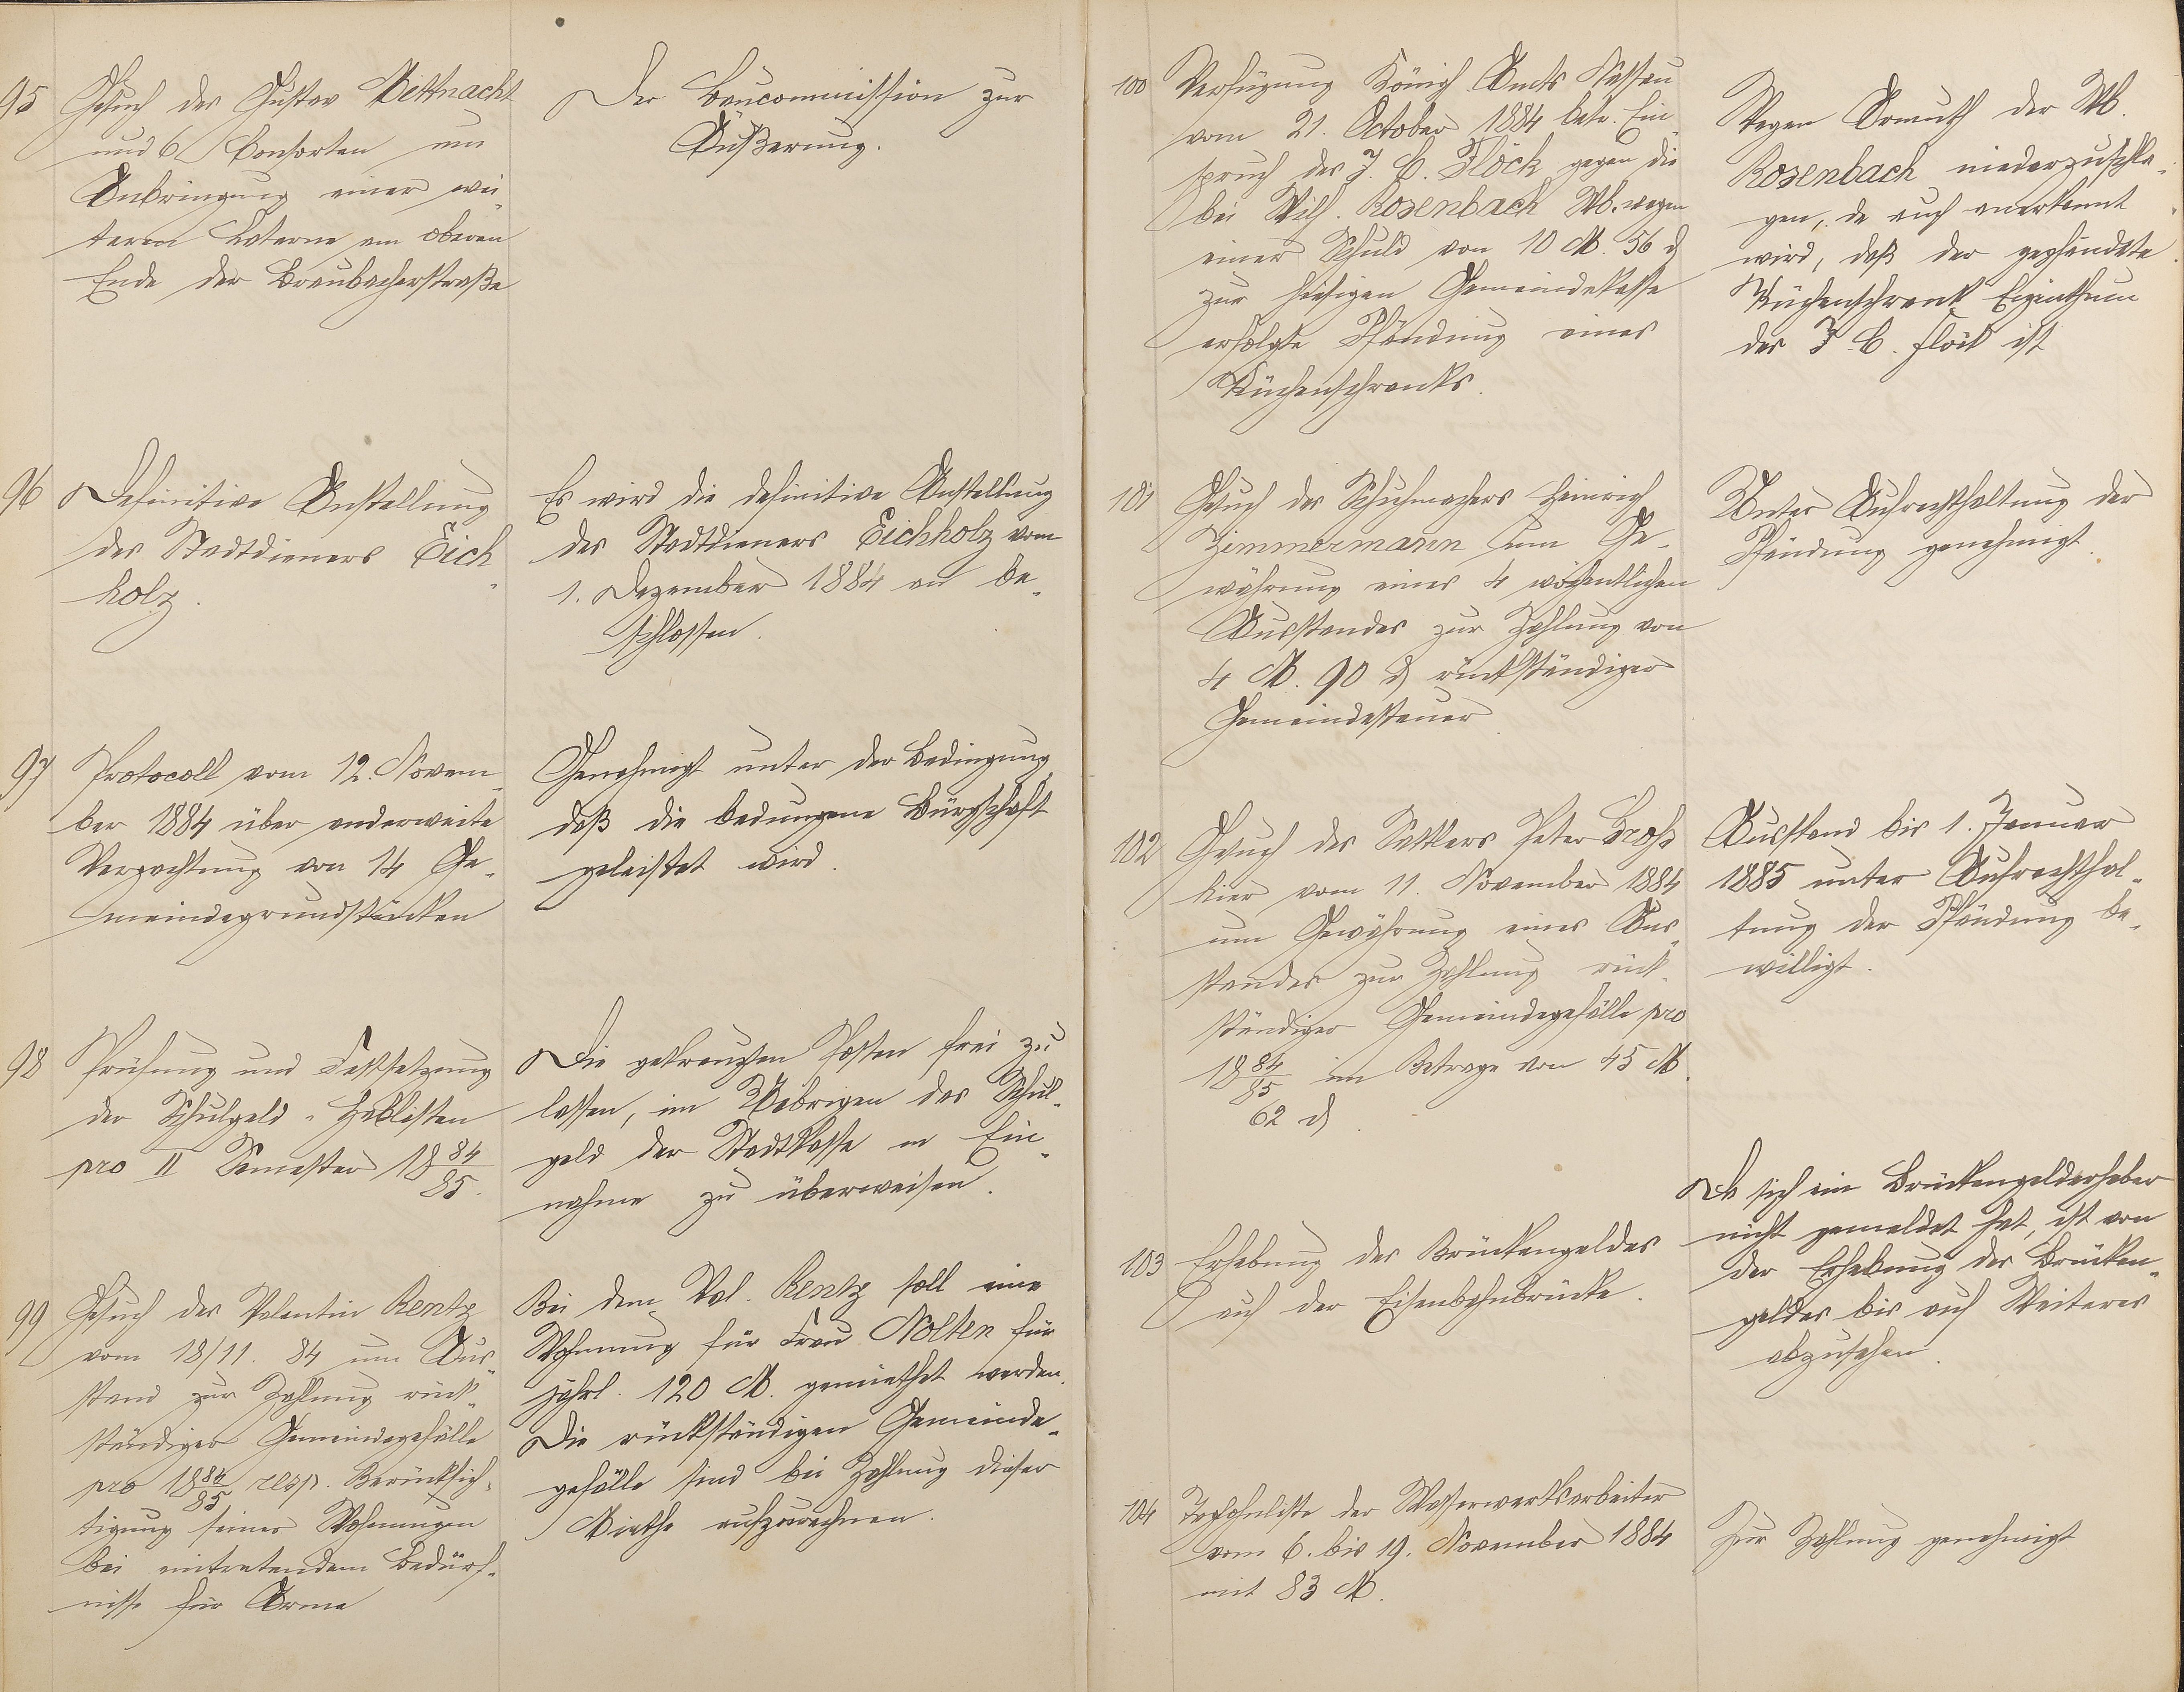 95 Gesuch des Gustav Bittnacht
und 6 Consorten um
Anbringung einer wei-
teren Laterne am oberen
Ende der Braubacherstraße
Der Baucommission zur
Äußerung.
96 Definitive Anstellung
des Stadtdieners Eich-
holz.
Es wird die definitive Anstellung
des Stadtdieners Eichholz vom
1. Dezember 1884 an be-
schlossen.
97 Protocoll vom 12. Novem-
ber 1884 über anderweite
Verpachtung von 14 Ge-
meindegrundstücken
Genehmigt unter der Bedingung
daß die bedungene Bürgschaft
geleistet wird.
98 Prüfung und Festsetzung
der Schulgeld-Heblisten
pro II Semester 1884/85.
Die gekreuzten Posten frei zu
lassen, im Uebrigen das Schul-
geld der Stadtkasse in Ein-
nahme zu überweisen.
99 Gesuch des Valentin Rentz
vom 18/11. 84 um Aus-
stand zur Zahlung rück-
ständiger Gemeindegefälle
pro 1884/85 resp. Berücksich-
tigung seiner Wohnungen
bei eintretendem Bedürf-
nisse für Arme
Bei dem Val. Rentz soll eine
Wohnung für Frau Nolten für
jährl. 120 M. gemiethet werden.
Die rückständigen Gemeinde-
gefälle sind bei Zahlung dieser
Miethe aufzurechnen.
100 Verfügung Königl. Amts Nassau
vom 21. October 1884 betr. Ein-
spruch des J. C. Flöck gegen die
bei Wilh. Rosenbach Wb. wegen
einer Schuld von 10 M. 56 d
zur hiesigen Gemeindekasse
erfolgte Pfändung eines
Küchenschranks.
Wegen Armuth der W.
Rosenbach niederzuschla-
gen, da auch anerkannt
wird, daß der gepfändete
Küchenschrank Eigenthum
des J. C. Flöck ist
101 Gesuch des Schuhmachers Heinrich
Zimmermann um Ge-
währung eines 4 wöchentlichen
Ausstandes zur Zahlung von
4 M. 90 d rückständiger
Gemeindesteuer
Unter Aufrechthaltung der
Pfändung genehmigt.
102 Gesuch des Sattlers Peter Groß
hier vom 11. November 1884
um Gewährung eines Aus-
standes zur Zahlung rück-
ständiger Gemeindegefälle pro
1884/85 im Betrage von 45 M.
62 d.
Ausstand bis 1. Januar
1885 unter Aufrechthal-
tung der Pfändung be-
willigt.
103 Erhebung des Brückengeldes
auf der Eisenbahnbrücke.
Da sich ein Brückengelderheber
nicht gemeldet hat, ist von
der Erhebung des Brücken-
geldes bis auf Weiteres
abzusehen.
104 Taglohnliste der Wasserwerksarbeiter
vom 6. bis 19. November 1884
mit 83 M.
Zur Zahlung genehmigt